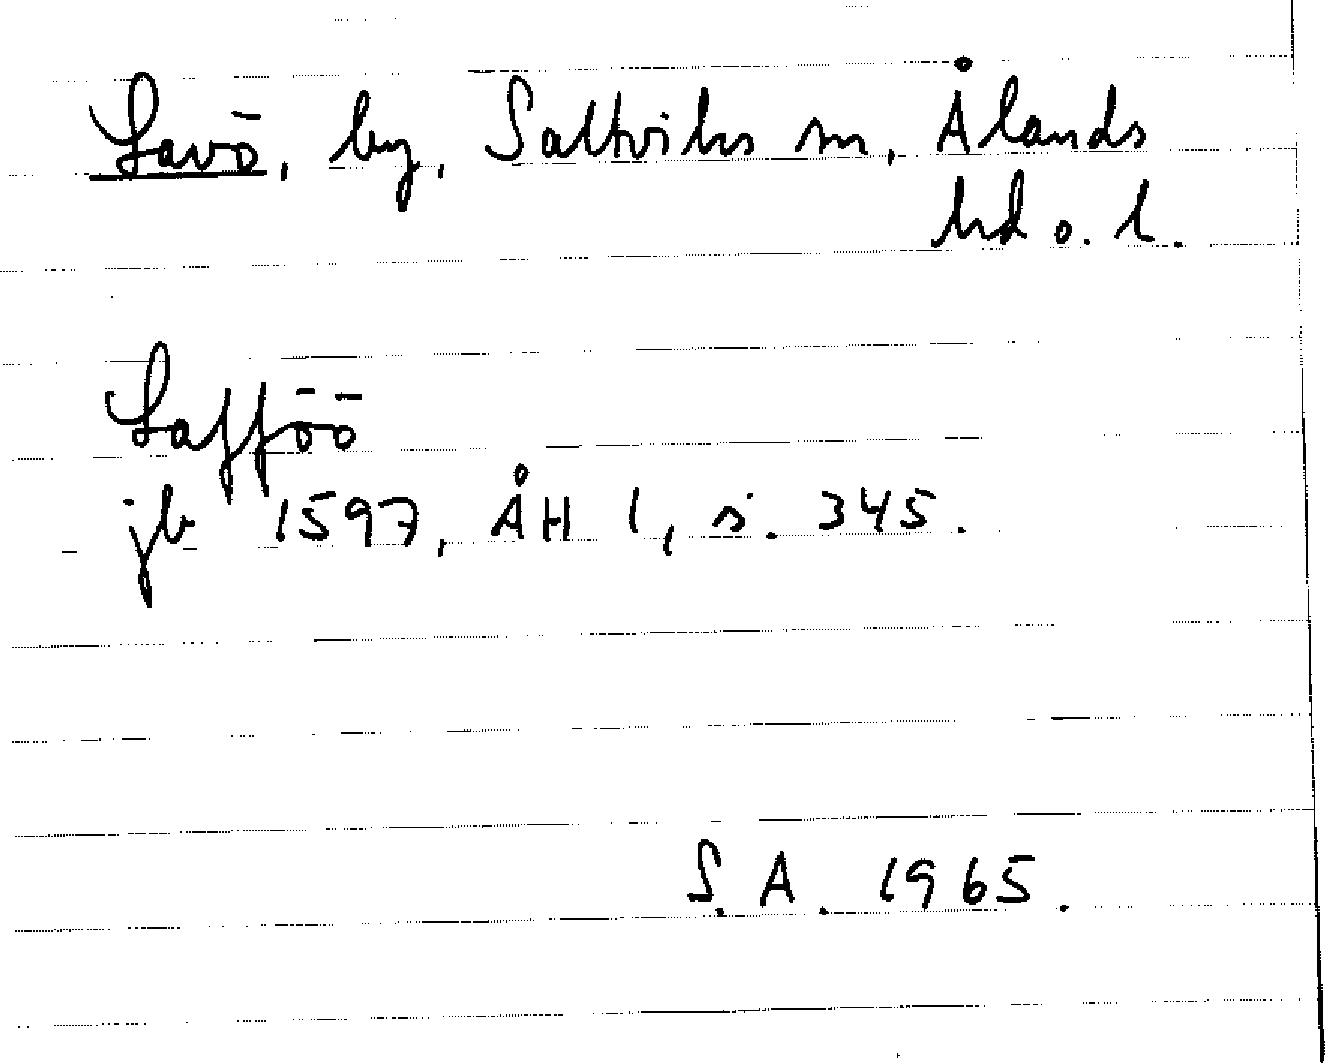 Lavö, by, Saltviks sn, Ålands
hd o. l.
Lafföö
jb 1597, ÅH 1, s. 345.
S. A. 1965.